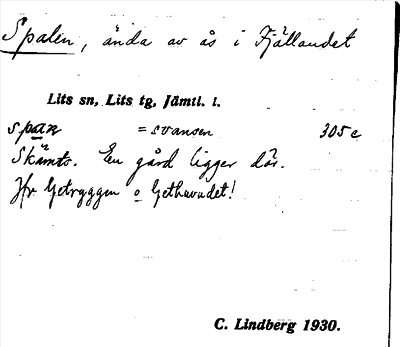 Spalen, ända av ås i Fjällandet
Lits sn, Lits tg, Jämtl. l.
span = svansen 305 c
Skämts. En gård ligger där.
Jfr Getryggen o Gethuvudet!
C. Lindberg 1930.